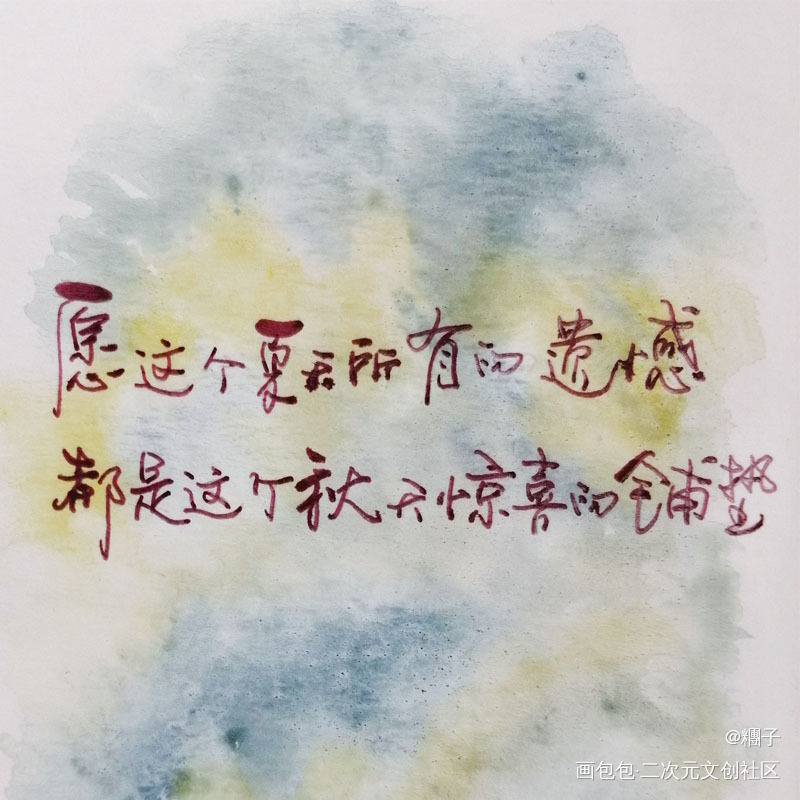 愿这个夏天所有的遗憾
都是这个秋天惊喜的铺垫
@糰子
画包包·二次元文创社区